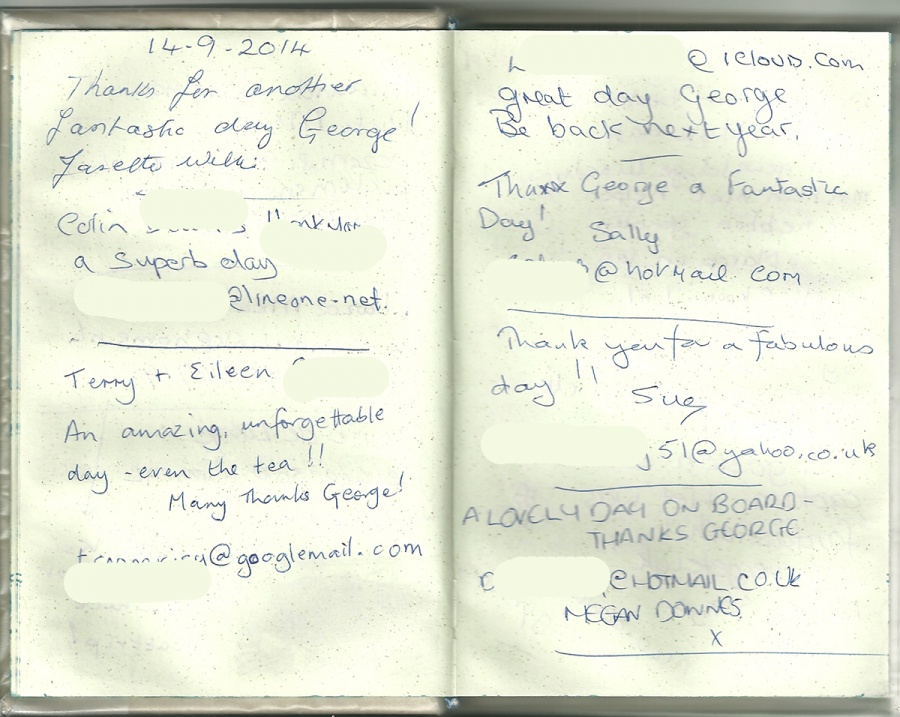 14-9-2014
Thanks for another
fantastic day George!
Colin
a superb day
@lineone-net.
Terry + Eileen
An amazing, unforgettable
day - even the tea!!
Many Thanks George!
@googlemail.com
@icloud.com
great day George
Be back next year.
Thanxx George a Fantastic
Day!
Sally
@hotmail com
Thank you for a fabulous
day!!
Sue
51@yahoo.co.uk
A LOVELY DAY ON BOARD -
THANKS GEORGE
C
@HOTMAIL.CO.UK
MEGAN DOWNES
X